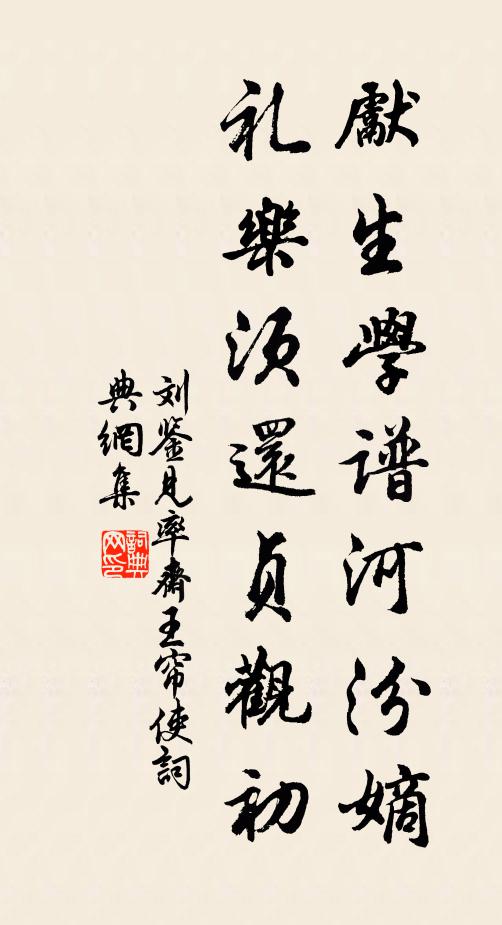 獻生學谱河汾嫡
礼樂須還貞觀初
刘鉴見率齋王帘使詞
典網集
詞典网印